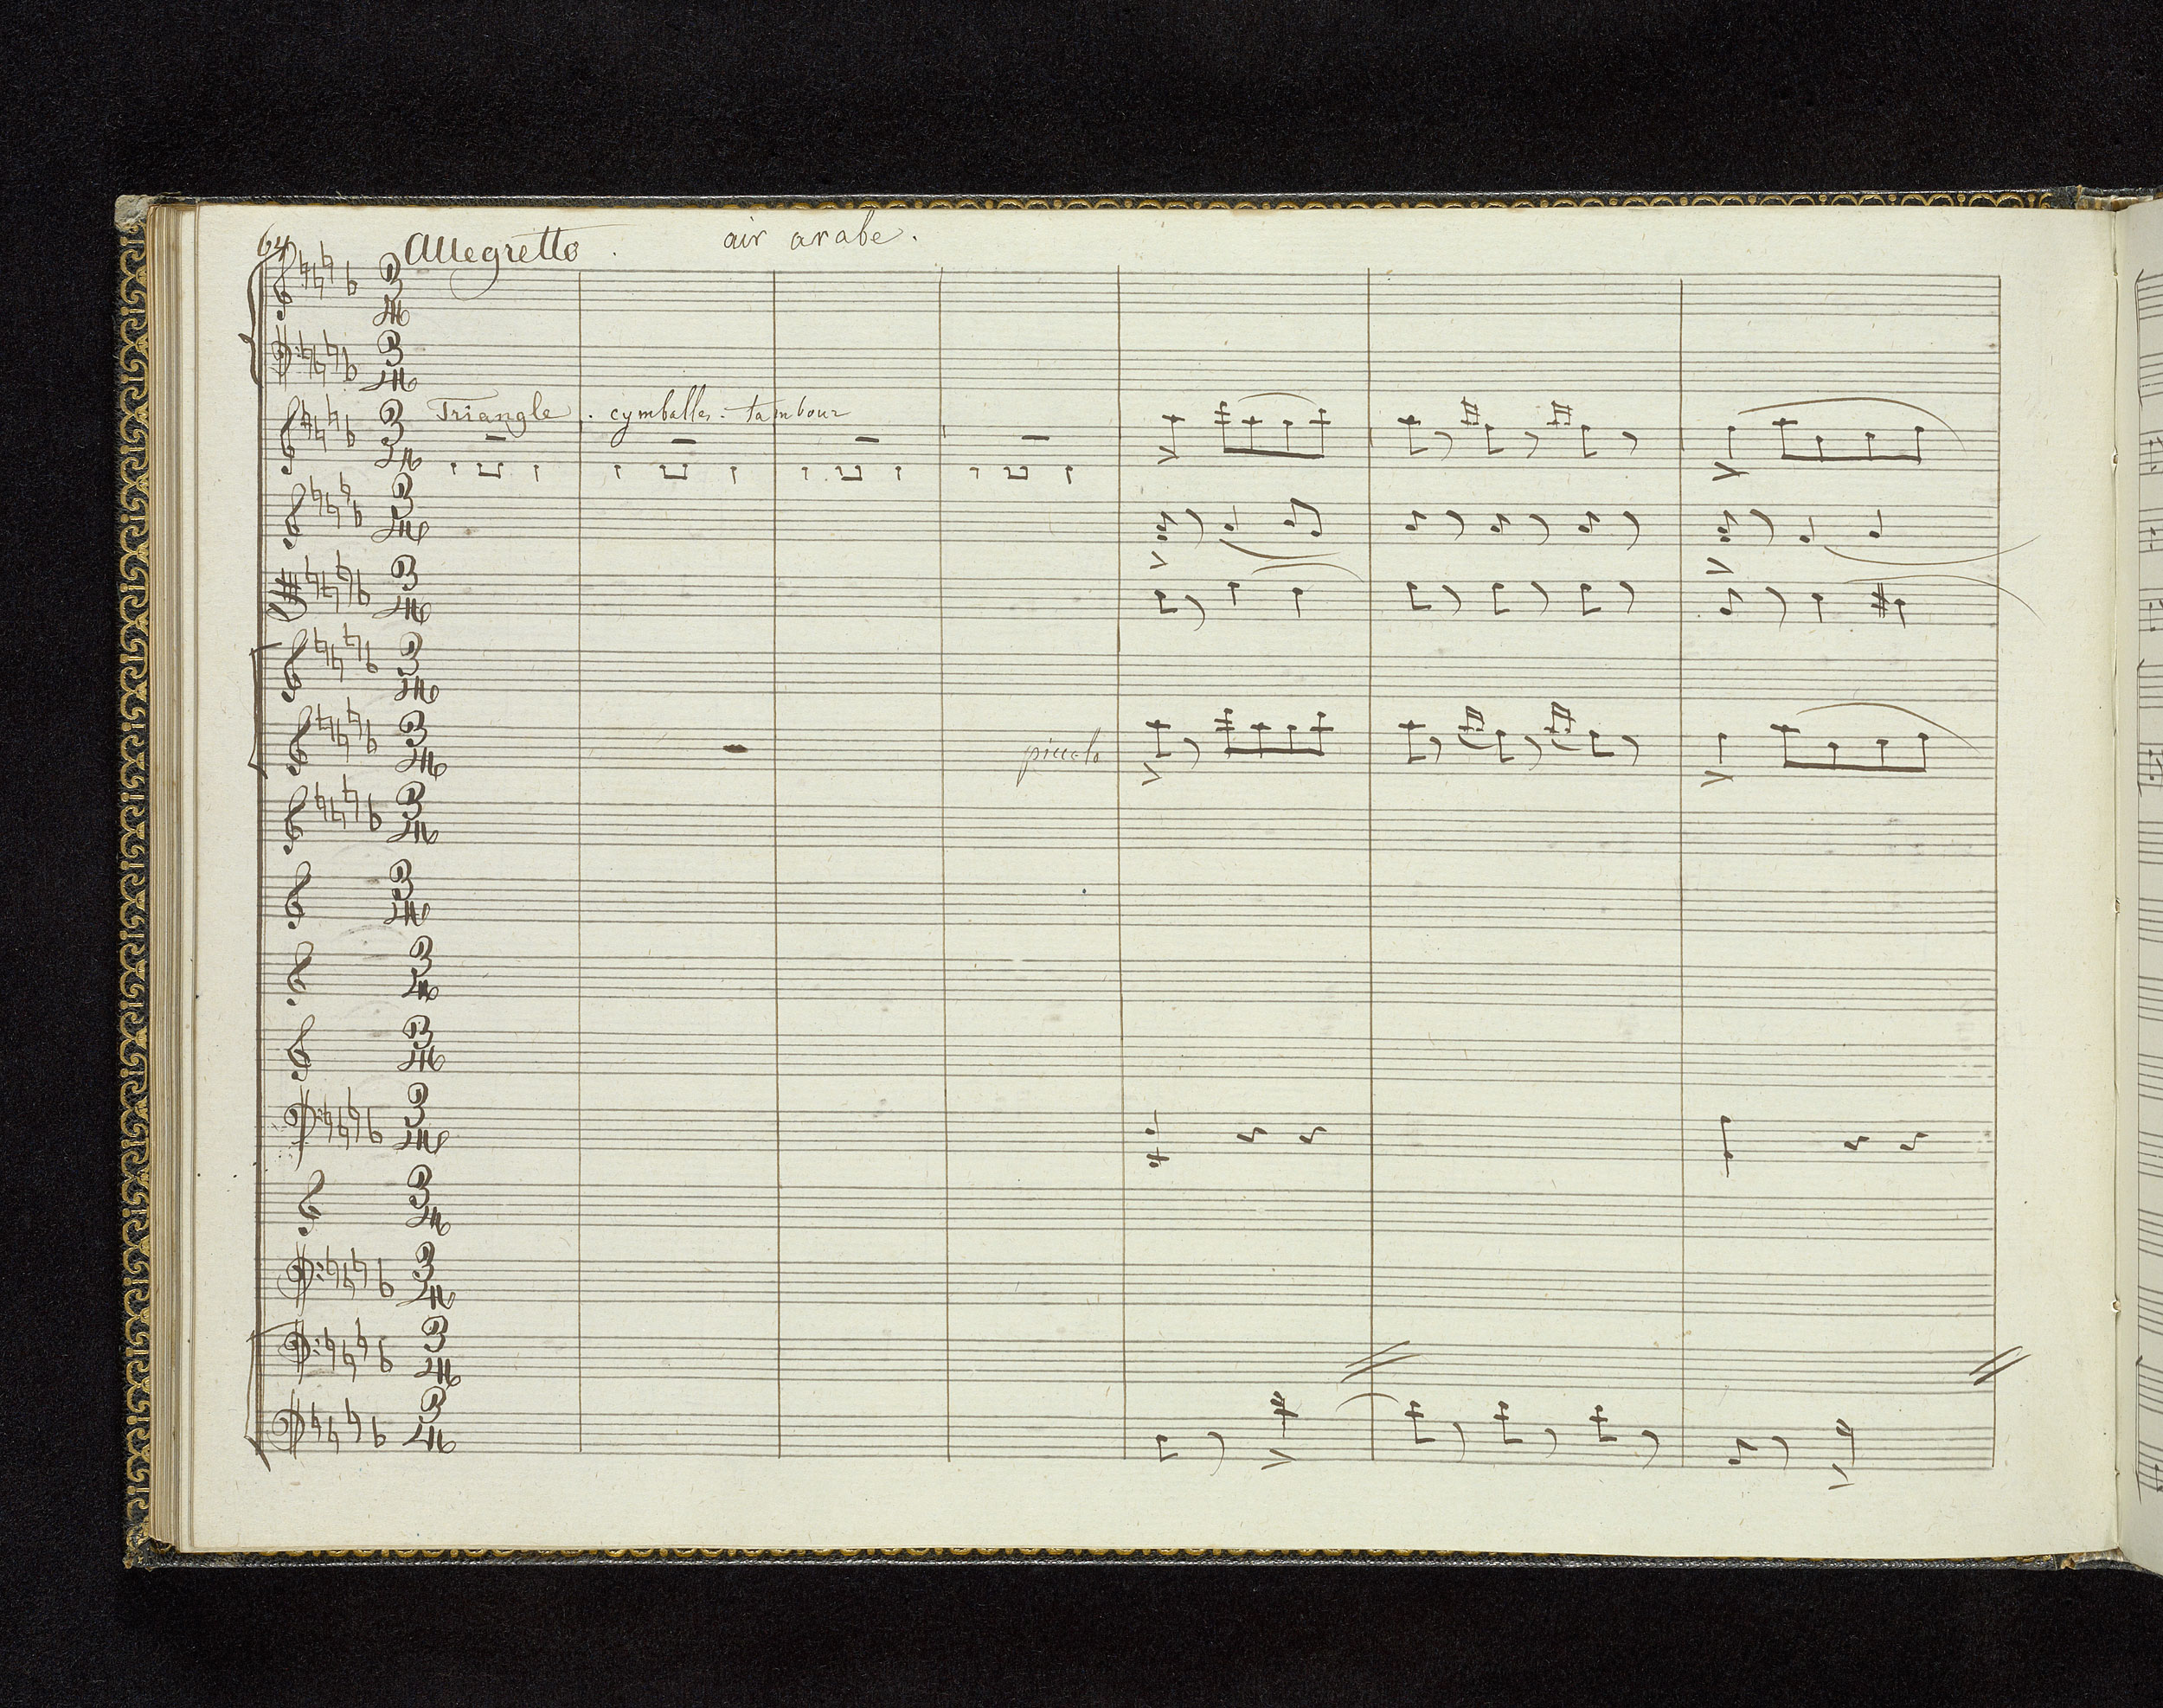 64 Allegretto. air arabe.
Triangle. cymballes. tambour
piccolo